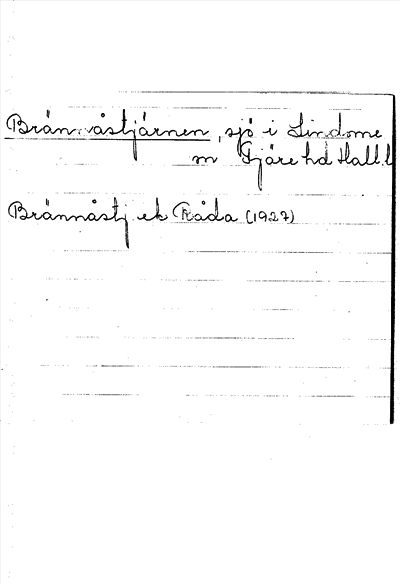 Brännåstjärnen, sjö i Lindome
sn Fjäre hd Hall.l
Brännåstj ek Råda (1927)